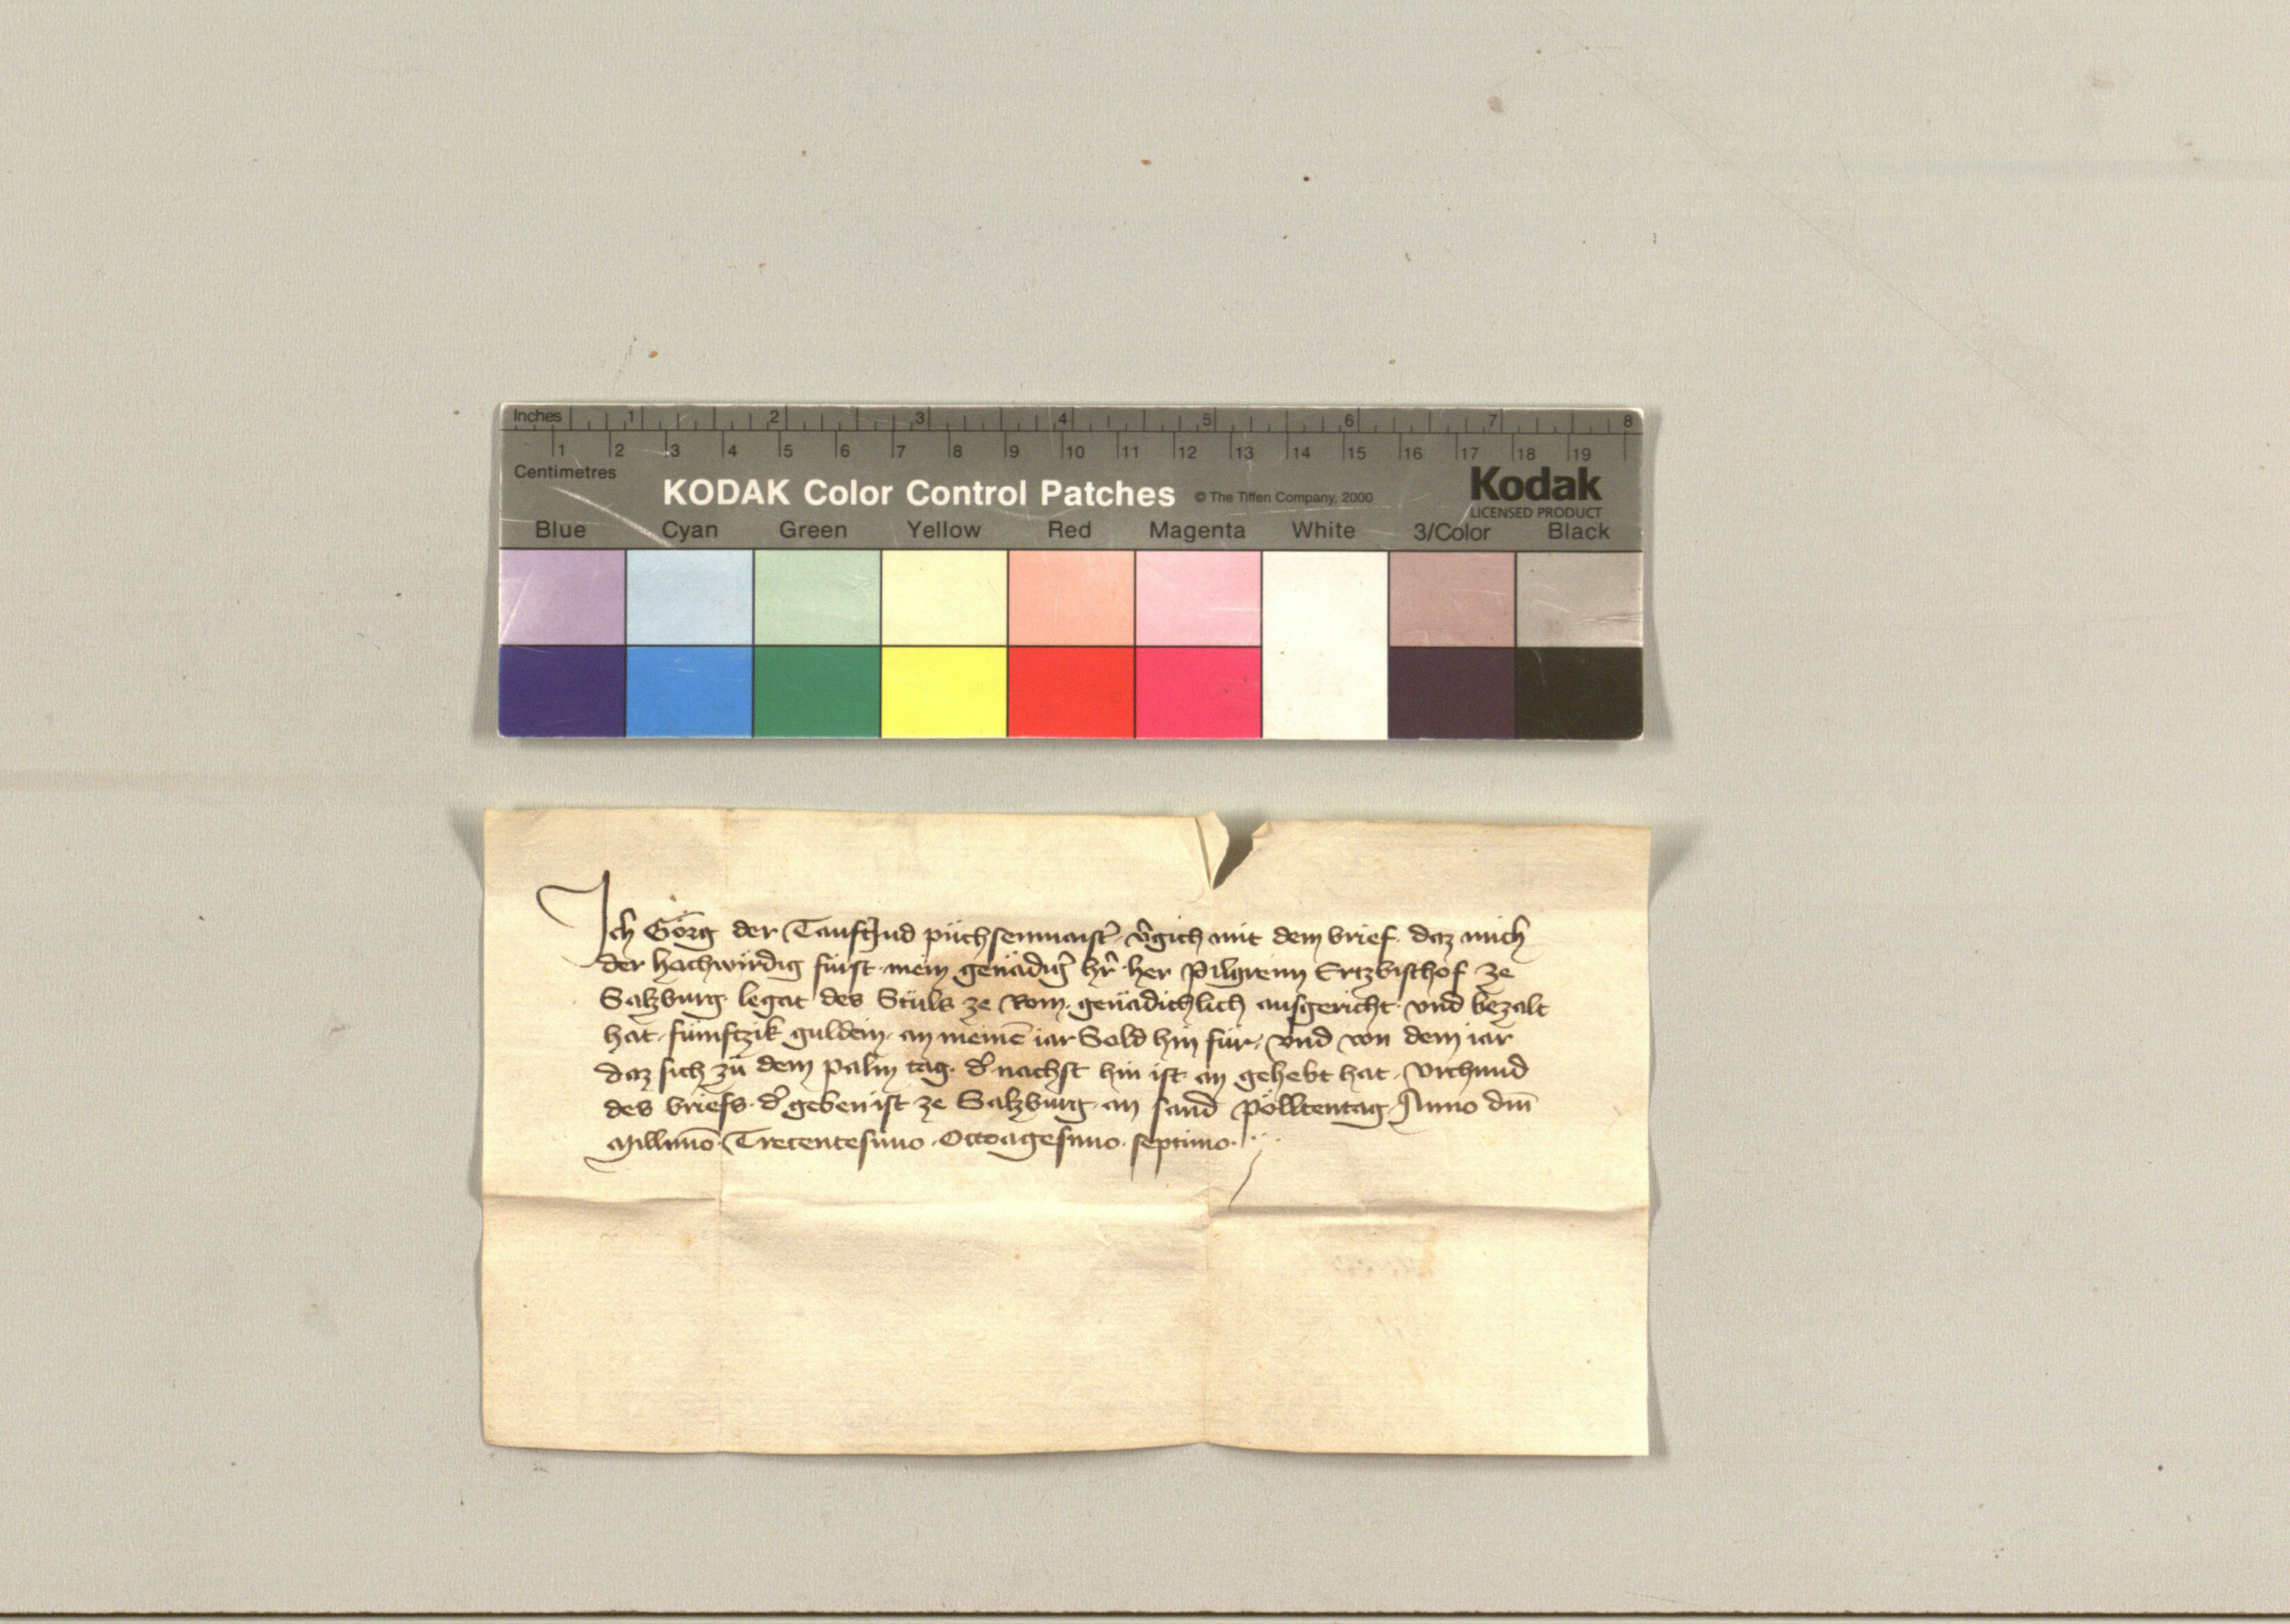 Inches 1 2 3 4 5 6 7 8
1 2 3 4 5 6 7 8 9 10 11 12 13 14 15 16 17 18 19
Centimetres
KODAK Color Control Patches © The Tiffen Company, 2000 Kodak
LICENSED PRODUCT
Blue Cyan Green Yellow Red Magenta White 3/Color Black
Ich Görg der püchsenmaist̄ v̄gich mit dem brief daz mich
der hochwirdig fürst mein genädiḡ hr̄ her Pilgreim Ertzbischof ze
Salzburg legat des Stuls ze Rom genädichlich ausgericht vnd bezalt
hat fümftzik guldein an meinē iar Sold hin für vnd von dem iar
daz sich zü dem palm tag d̄ nachst hin ist an gehebt hat vrchund
des briefs d̄ geben ist ze Salzburg an sand Pölltentag Anno dm̄
Millm̄o Trecentesimo Octoagesimo septimo